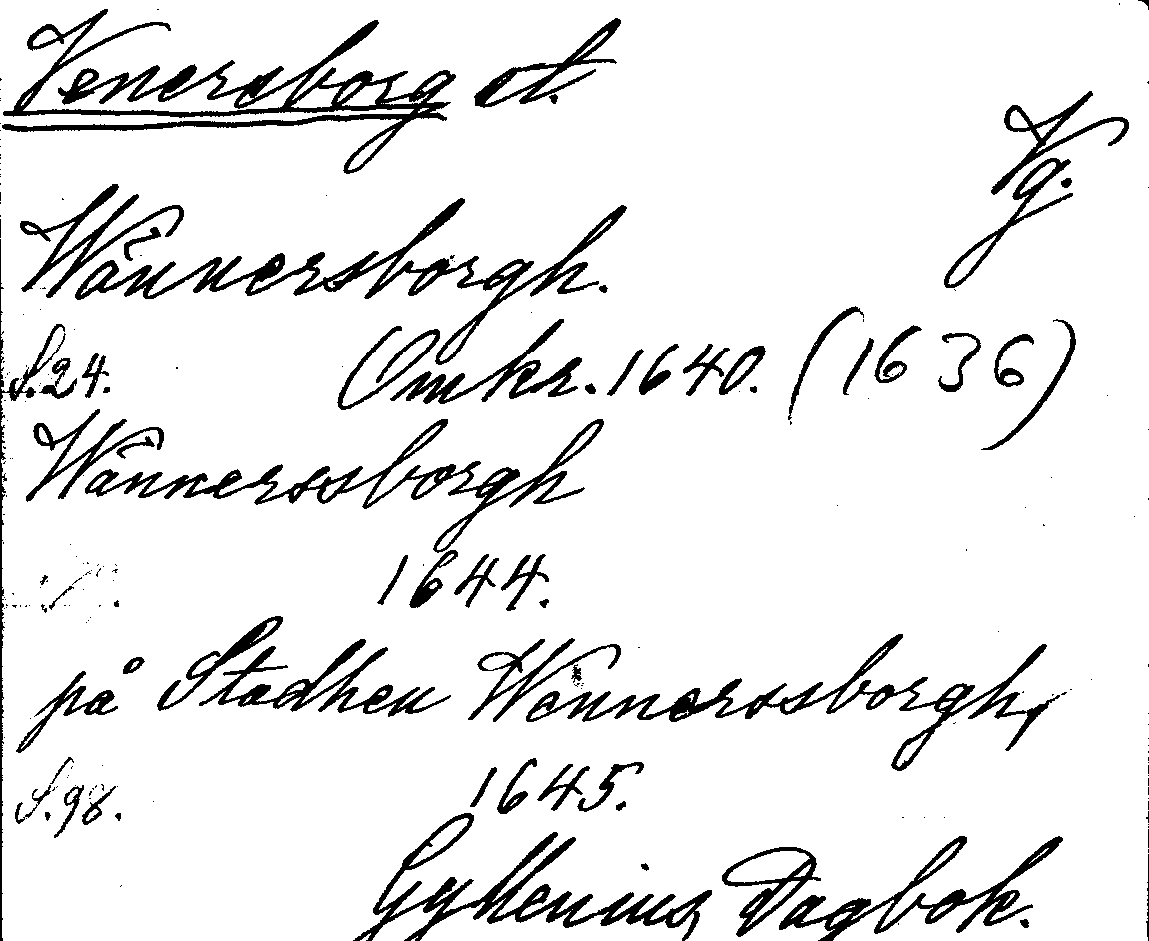 Venersborg st.
Vg.
Wännersborgh.
S. 24. Omkr. 1640. (1636)
Wännerssborgh
1644.
på Stadhen Wennerssborgh,
S. 98. 1645.
Gyllenius, Dagbok.